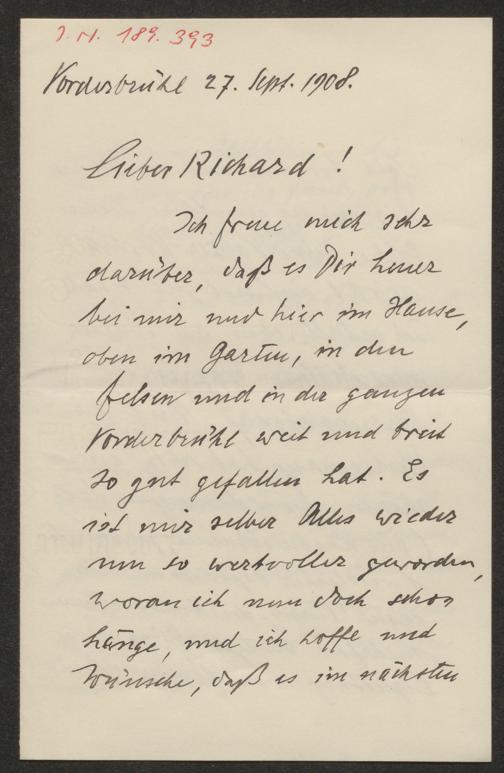 I. N. 189.393
Vorderbrühl 27. Sept. 1908.
Lieber Richard!
Ich freue mich sehr
darüber, daß es Dir heuer
bei mir und hier im Hause,
oben im Garten, in den
Felsen und in der ganzen
Vorderbrühl weit und breit
so gut gefallen hat. Es
ist mir selber Alles wieder
um so wertvoller geworden,
woran ich nun doch schon
hänge, und ich hoffe und
wünsche, daß es im nächsten